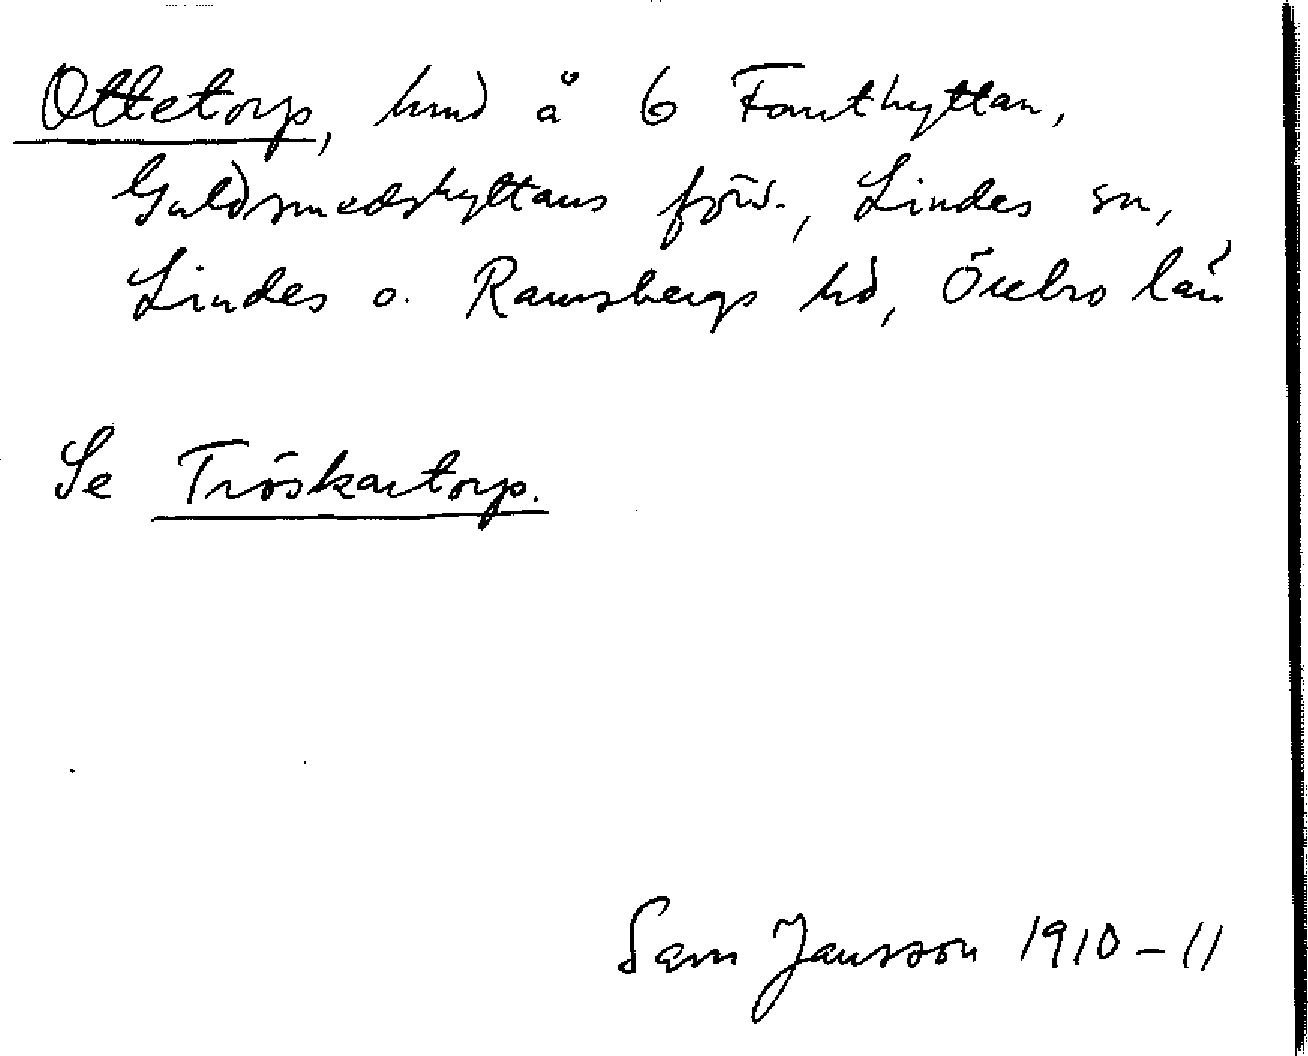 Ottetorp, hmd å 6 Fanthyttan,
Guldsmedshyttans förs., Lindes sn,
Lindes o. Ramsbergs hd, Örebro län
Se Tröskartorp.
Sam Jansson 1910-11